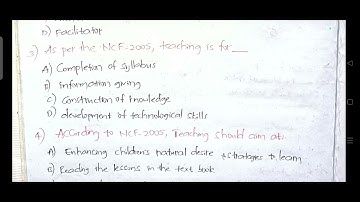 D) Facilitator
3) As per the NCF-2005, teaching is for __
A) Completion of syllabus
B) Information giving
C) Construction of knowledge
D) development of technological skills
4) According to NCF-2005, Teaching should aim at:
A) Enhancing children's natural desire & strategies to learn
B) Reading the lessons in the text book